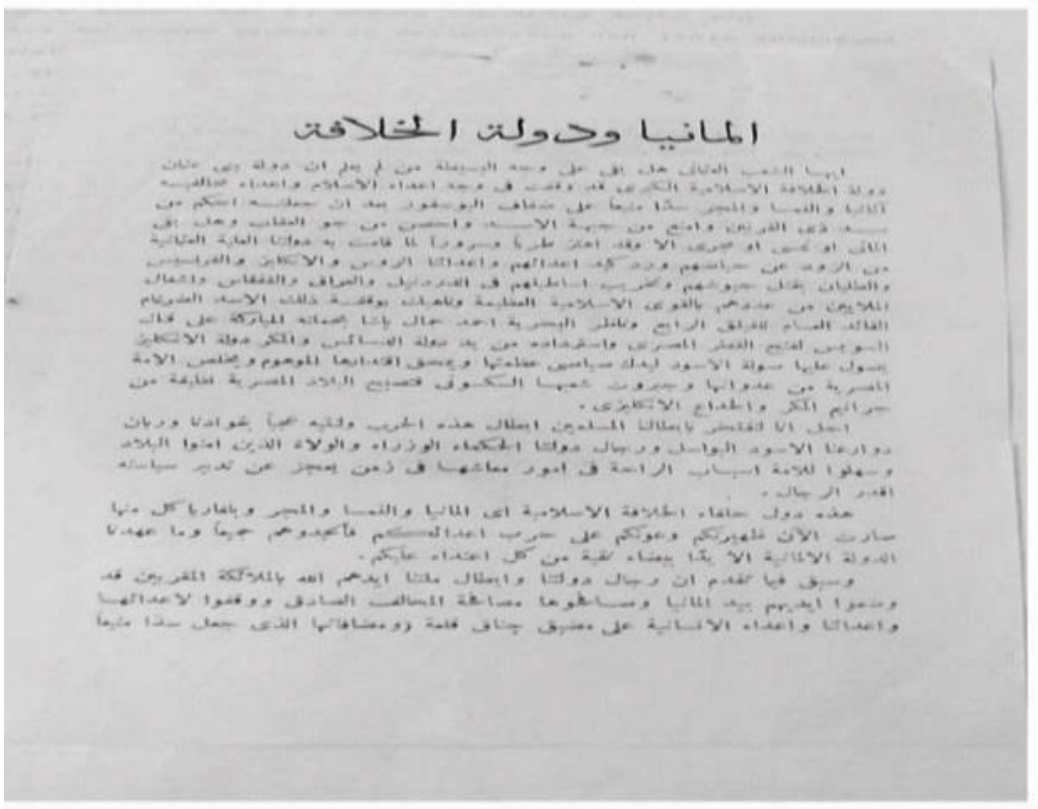 المانيا ودولة الخلافة
ايها الشعب العثمانى هل بقى على وجه البسيطة من لم يعلم ان دولة بنى عثمان
دولة الخلافة الاسلامية الكبرى قد وقفت فى وجه اعداء الاسلام واعداء محالفيه
المانيا والنمسا والمجر سدّا منيعاً على ضفاف البوسفور بعد ان جعلته احكم من
ســد ذى القرنين وامنع من جبهة الاســد واحصن من جو العقاب وهل بقى
المانى او نمسى او مجرى الا وقد اهتز طرباً وسروراً لما قامت به دولتنا العلية العثمانية
من الزود عن حياضهم ورد كيد اعدائهم واعدائنا الروس والانكليز والفرنسيس
والطليان بقتل جيوشهم وتخريب اساطيلهم فى الدردنيل والعراق والقفقاس واشغال
الملايين من عددهم بالقوى الاسلامية العظيمة وناهيك بوقفــة ذلك الاسد الضرغام
القائد العــام للفيلق الرابع وناظر البحرية احمد جمال باشا بحملته المباركة على قنال
السويس لفتح القطر المصرى واسترداده من يد دولة الدسائس والمكر دولة الانكليز
يصول عليها صولة الاسود ليدك سياسى عظمتها ويمحق اقتدارها الموهوم ويخلص الامة
المصرية من عدوانها وجبروت شعبها السكسونى فتصبح البلاد المصرية نظيفة من
جراثيم المكر والخداع الانكليزى .
اجل انا لنفتخر بابطالنا المسلمين ابطال هذه الحرب ونتيه عجباً بقوادنا وربان
دوارعنا الاسود البواسل ورجال دولتنا الحكماء الوزراء والولاة الذين امنوا البلاد
وسهلوا للامة اسباب الراحة فى امور معاشهــا فى زمن يعجز عن تدبير سياسته
اقدر الرجال .
هذه دول حلفاء الخلافة الاسلامية اى المانيا والنمسا والمجر وبلغاريا كل منها
صارت الآن ظهيرتكم وعونكم على حرب اعدائكــم فأنجدوهم جميعاً وما عهدنا
الدولة الالمانية الا يدًا بيضاء نقية من كل اعتداء عليكم .
وسبق فيما تقدم ان رجال دولتنا وابطال ملتنا ايدهم الله بالملائكة المقربين قد
وضعوا ايديهم بيد المانيا وصــافحوها مصافحة المحالف الصادق ووقفوا لاعدائهــا
واعدائنا واعداء الانسانية على مضيق چناق قلعة (ومضافاتها الذى جعل سدّا منيعاً